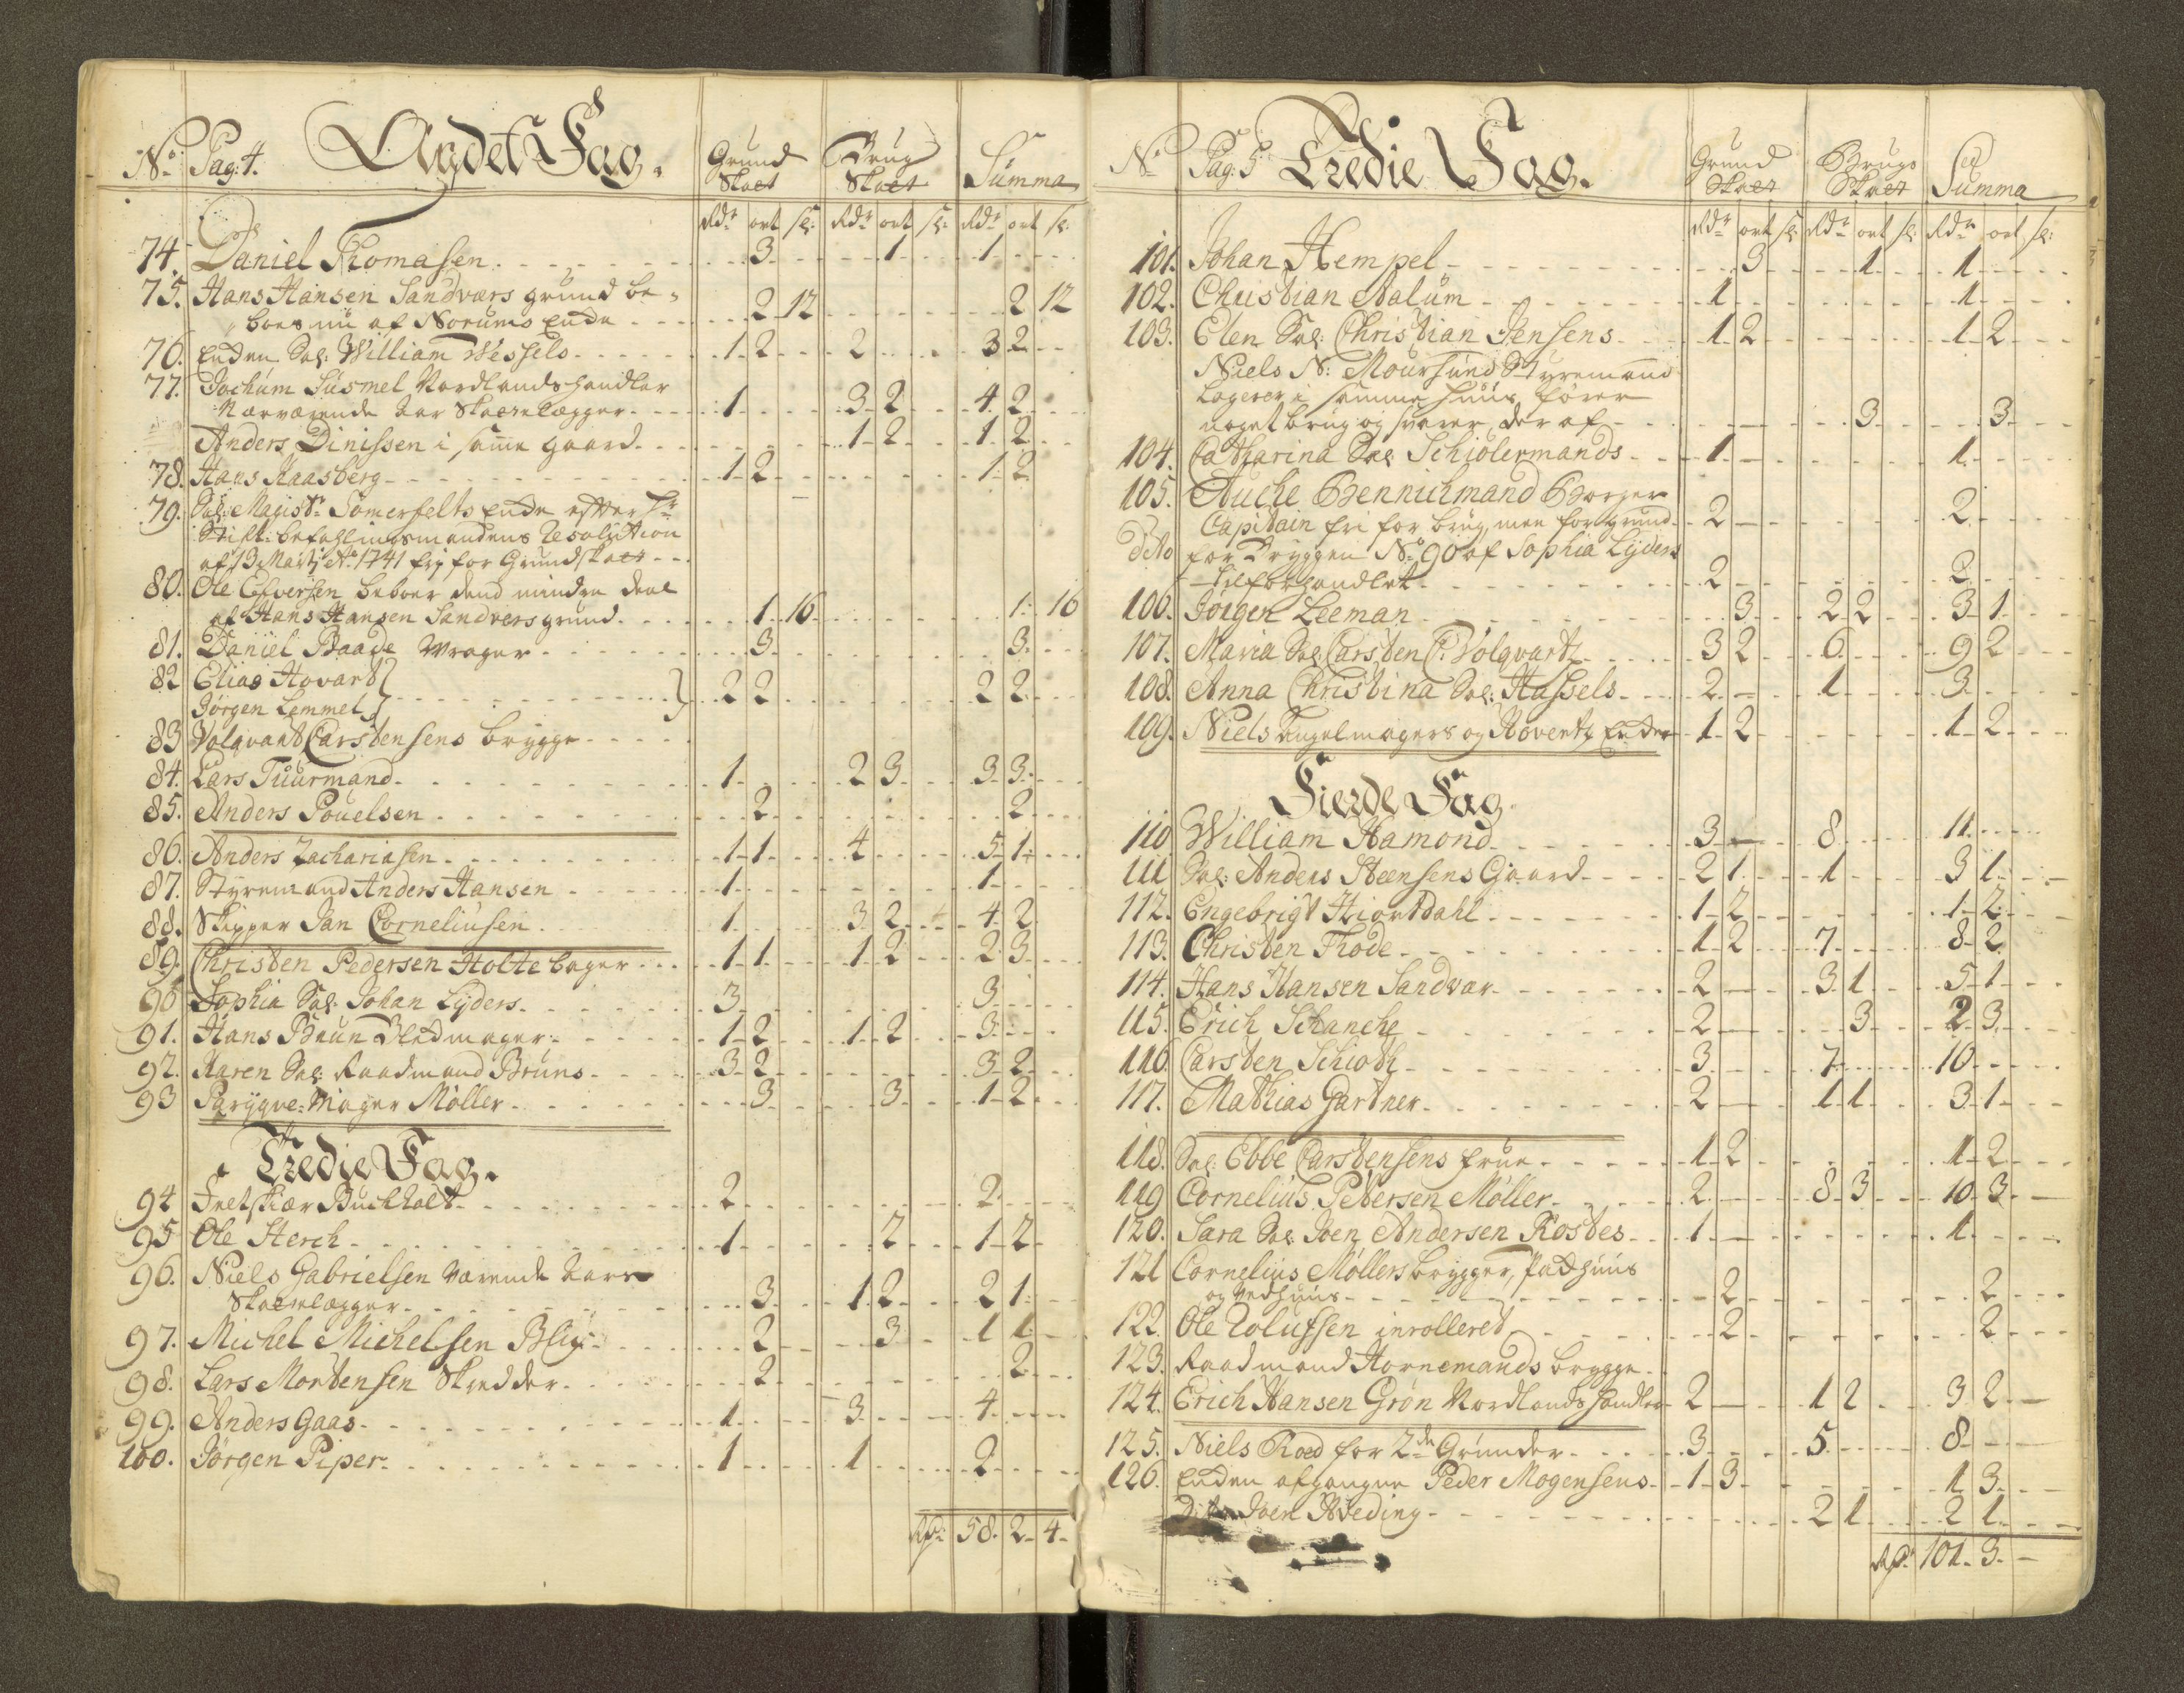 No. Pag: 4. Andet Fag. Grund Skatt Brug Skatt Summa
Rdr ort sk: Rdr ort sk: Rdr ort sk:
74. Daniel Thomasen 3 1 1
75. Hans Hansen Sandværs grund be-
boes nu af Norums Enke 2 12 2 12
76. Enken Sal: William Wessels 1 2 2 3 2
77. Jochum Susmel Nordlandshandler
Nærværende Aar Skattelægger 1 3 2 4 2
Anders Dinissen i samme gaard 1 2 1 2
78. Hans Haasberg 1 2 1 2
79. Sal: Magistr Somerfelts Enke efter Hr
Stift-befahlingsmandens Resolution
af 13 Martj Ao 1741 frj for Grundskatt
80. Ole Elversen beboer dend mindre deel
af Hans Hansen Sandvers grund 1 16 1 16
81. Daniel Baade Wrager 3 3
82 Elias Hovart
Jørgen Lemmel 2 2 2 2
83 Volqvart Carstensens brygge
84. Lars Tuurmand 1 2 3 3 3
85. Anders Pouelsen 2 2
86. Anders Zachariasen 1 1 4 5 1
87. Styremand Anders Hansen 1 1
88. Skipper Jan Corneliusen 1 3 2 4 2
89. Christen Pedersen Holte bager 1 1 1 2 2 3
90 Sophia Sal: Johan Lyders 3 3
91. Hans Bruun Bledmager 1 2 1 2 3
92. Karen Sal: Raadmand Bruns 3 2 3 2
93 Paryqve-Mager Møller 3 3 1 2
Tredie Fag.
94 Fretskiær Buchholt 2 2
95 Ole Herch 1 2 1 2
96. Niels Gabrielsen værende Aars
Skattelægger 3 1 2 2 1
97. Michel Michelsen Blix 2 3 1 1
98. Lars Mortensen Skredder 2 2
99. Anders Gaas 1 3 4
100. Jørgen Piper 1 1 2
Rdr 58 2 4
No Pag: 5 Tredie Fag. Grund Skatt Brugs Skatt Summa
Rdr ort sk: Rdr ort sk: Rdr ort sk:
101. Johan Hempel 3 1 1
102. Christian Aalum 1 1
103. Elen Sal: Christian Jensens 1 2 1 2
Niels N: Moursund Styremand
Logerer i samme huus fører
noget brug og svarer der af 3 3
104. Catharina Sal Schiølermands 1 1
105. Auche Bennichmand Borger
Capitain fri for brug, men for grund 2 2
Dito for Bryggen No 90 af Sophia Lyders
tilforhandlet 2 2
106. Jørgen Leeman 3 2 2 3 1
107. Maria Sal: Carsten C: Volqvartz 3 2 6 9 2
108. Anna Christina Sal: Hassels 2 1 3
109. Niels Kugelmagers og Hovertz Enker 1 2 1 2
Fierde Fag.
110 William Hamond 3 8 11
111 Sal: Anders Steensens Gaard 2 1 1 3 1
112. Engebrigt Hiortdahl 1 2 1 2
113. Christen Thode 1 2 7 8 2
114. Hans Hansen Sandvær 2 3 1 5 1
115. Erich Schanche 2 3 2 3
116. Carsten Schiøtz 3 7 10
117. Mathias Gartner 2 1 1 3 1
118. Sal: Ebbe Carstensens frue 1 2 1 2
119 Cornelius Petersen Møller 2 8 3 10 3
120. Sara Sal Joen Andersen Rostes 1 1
121 Cornelius Møllers brygger, Pakhuus
og Vedhuus 2 2
122. Ole Rolufsen inrolleret 2 2
123. Raadmand Hornemands brygge
124. Erich Hansen Grøn Nordlandshandler 2 1 2 3 2
125. Niels Roed for 2de Grunder 3 5 8
126. Enken afgangne Peder Mogensens 1 3 1 3
Dito Joen Hveding 2 1 2 1
Rdr 101 3